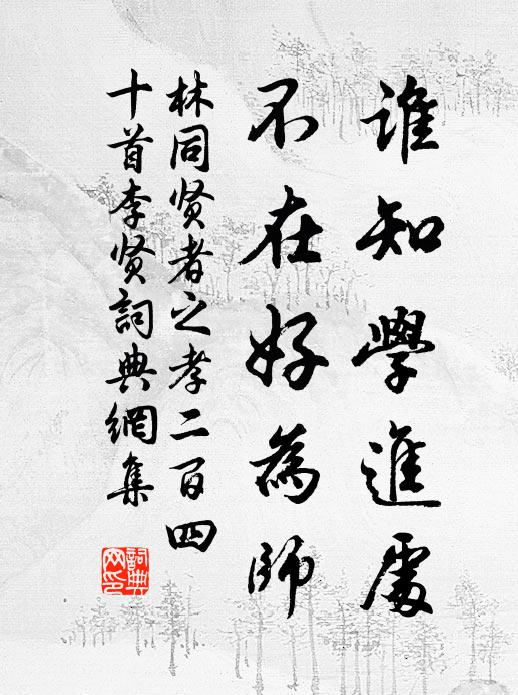 誰知學進處
不在好為師
林同贤者之孝二百四
十首李贤詞典網集
詞典网印